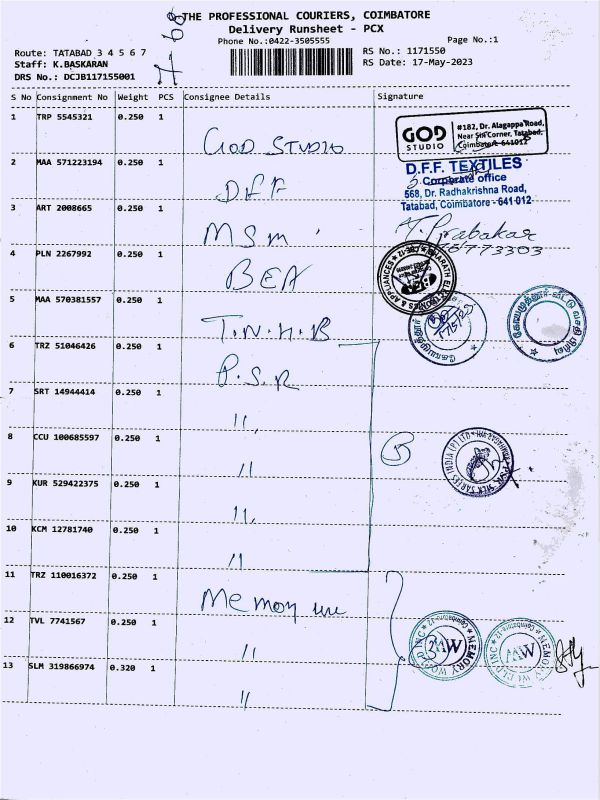 THE PROFESSIONAL COURIERS, COIMBATORE
Delivery Runsheet - PCX
Phone No.:0422-3505555
Page No.:1
Route: TATABAD 3 4 5 6 7
Staff: K.BASKARAN
DRS No.: DCJB117155001
RS No.: 1171550
RS Date: 17-May-2023
S No Consignment No Weight PCS Consignee Details Signature
1 TRP 5545321 0.250 1 GOD STUDIO
GOD STUDIO
#182, Dr. Alagappa Road,
Near Six Corner, Tatabad,
Coimbatore-641012
2 MAA 571223194 0.250 1 DFF
D.F.F. TEXTILES
Corporate office
568, Dr. Radhakrishna Road,
Tatabad, Coimbatore - 641 012
3 ART 2008665 0.250 1 MSM
T. Prabakar
4 PLN 2267992 0.250 1 BEA
5 MAA 570381557 0.250 1 T.N.H.B
6 TRZ 51046426 0.250 1 P.S.R
7 SRT 14944414 0.250 1 11,
8 CCU 100685597 0.250 1 11
9 KUR 529422375 0.250 1 11,
10 KCM 12781740 0.250 1 11
11 TRZ 110016372 0.250 1 Memory
12 TVL 7741567 0.250 1 11
MEMORY WORLD INC
Coimbatore-12
MW
MEMORY WORLD INC
Coimbatore-12
MW
13 SLM 319866974 0.320 1 11